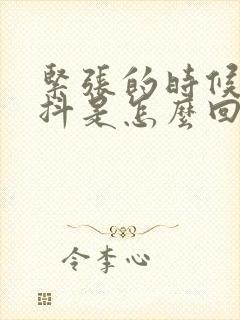 緊張的時候
抖是怎麼回
令李心